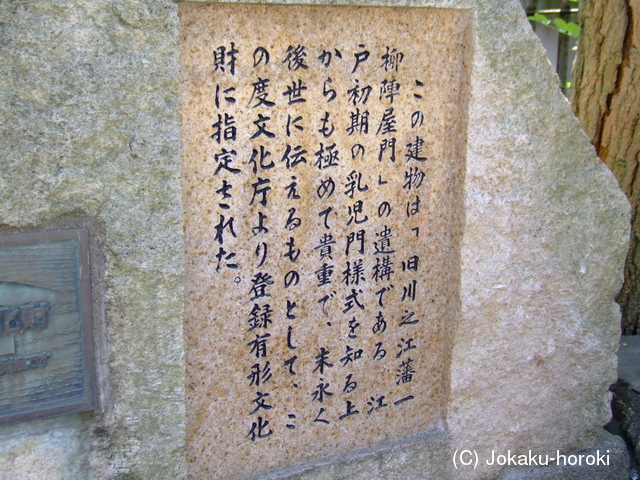 この建物は「旧川之江藩一
柳陣屋門」の遺構である。江
戸初期の乳児門様式を知る上
からも極めて貴重で、末永く
後世に伝えるものとして、こ
の度文化庁より登録有形文化
財に指定された。
(C) Jokaku-horoki